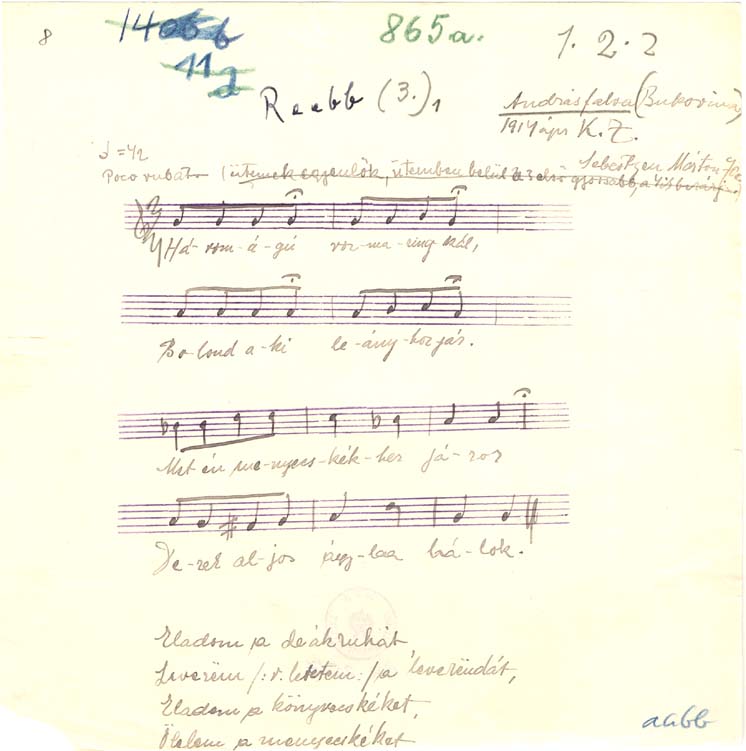 8
14
bb
865a.
1. 2. 2
Raabb (3.)1
Andrásfalva (Bukovina)
1914 ápr K. Z.
♩=42
Sebestyén Márton
Poco rubato (ütemek egyenlők, ütemben belül
Há-rom-á-gú roz-ma-ring szál,
Bo-lond a-ki le-ány-hoz jár.
Mst én me-nyecs-kék-hez já-rok
De-rek al-jos ágy-baa há-lok.
Eladom a deákruhát,
Leverëm /:v. letetem:/ a leverëndát,
Eladom a könyvecskéket,
Ölelem a menyecskéket
aabb